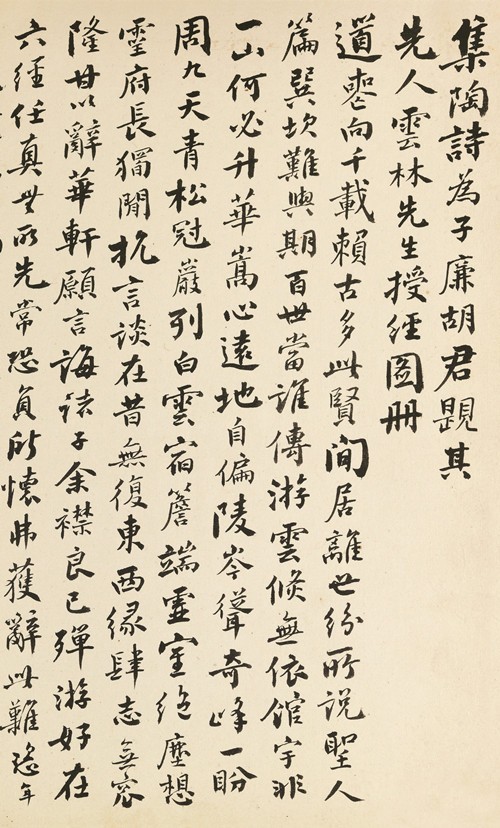 集陶詩為子廉胡君題其
先人雲林先生授經圖冊
道喪向千載賴古多此賢閒居離世紛所說聖人
篇巽坎難與期百世當誰傳游雲倏無依館宇非
一山何必升華嵩心遠地自偏陵岑聳奇峰一盼
周九天青松冠巖列白雲宿簷端虛室絕塵想
靈府長獨閒抗言談在昔無復東西緣肆志無窊
隆甘以辭華軒願言誨諸子余襟良已殫游好在
六經任真無所先常恐負所懷弗獲辭此難